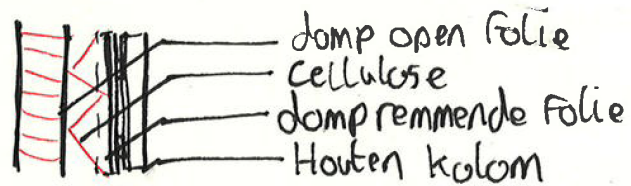 damp open folie
cellulose
dampremmende folie
Houten kolom